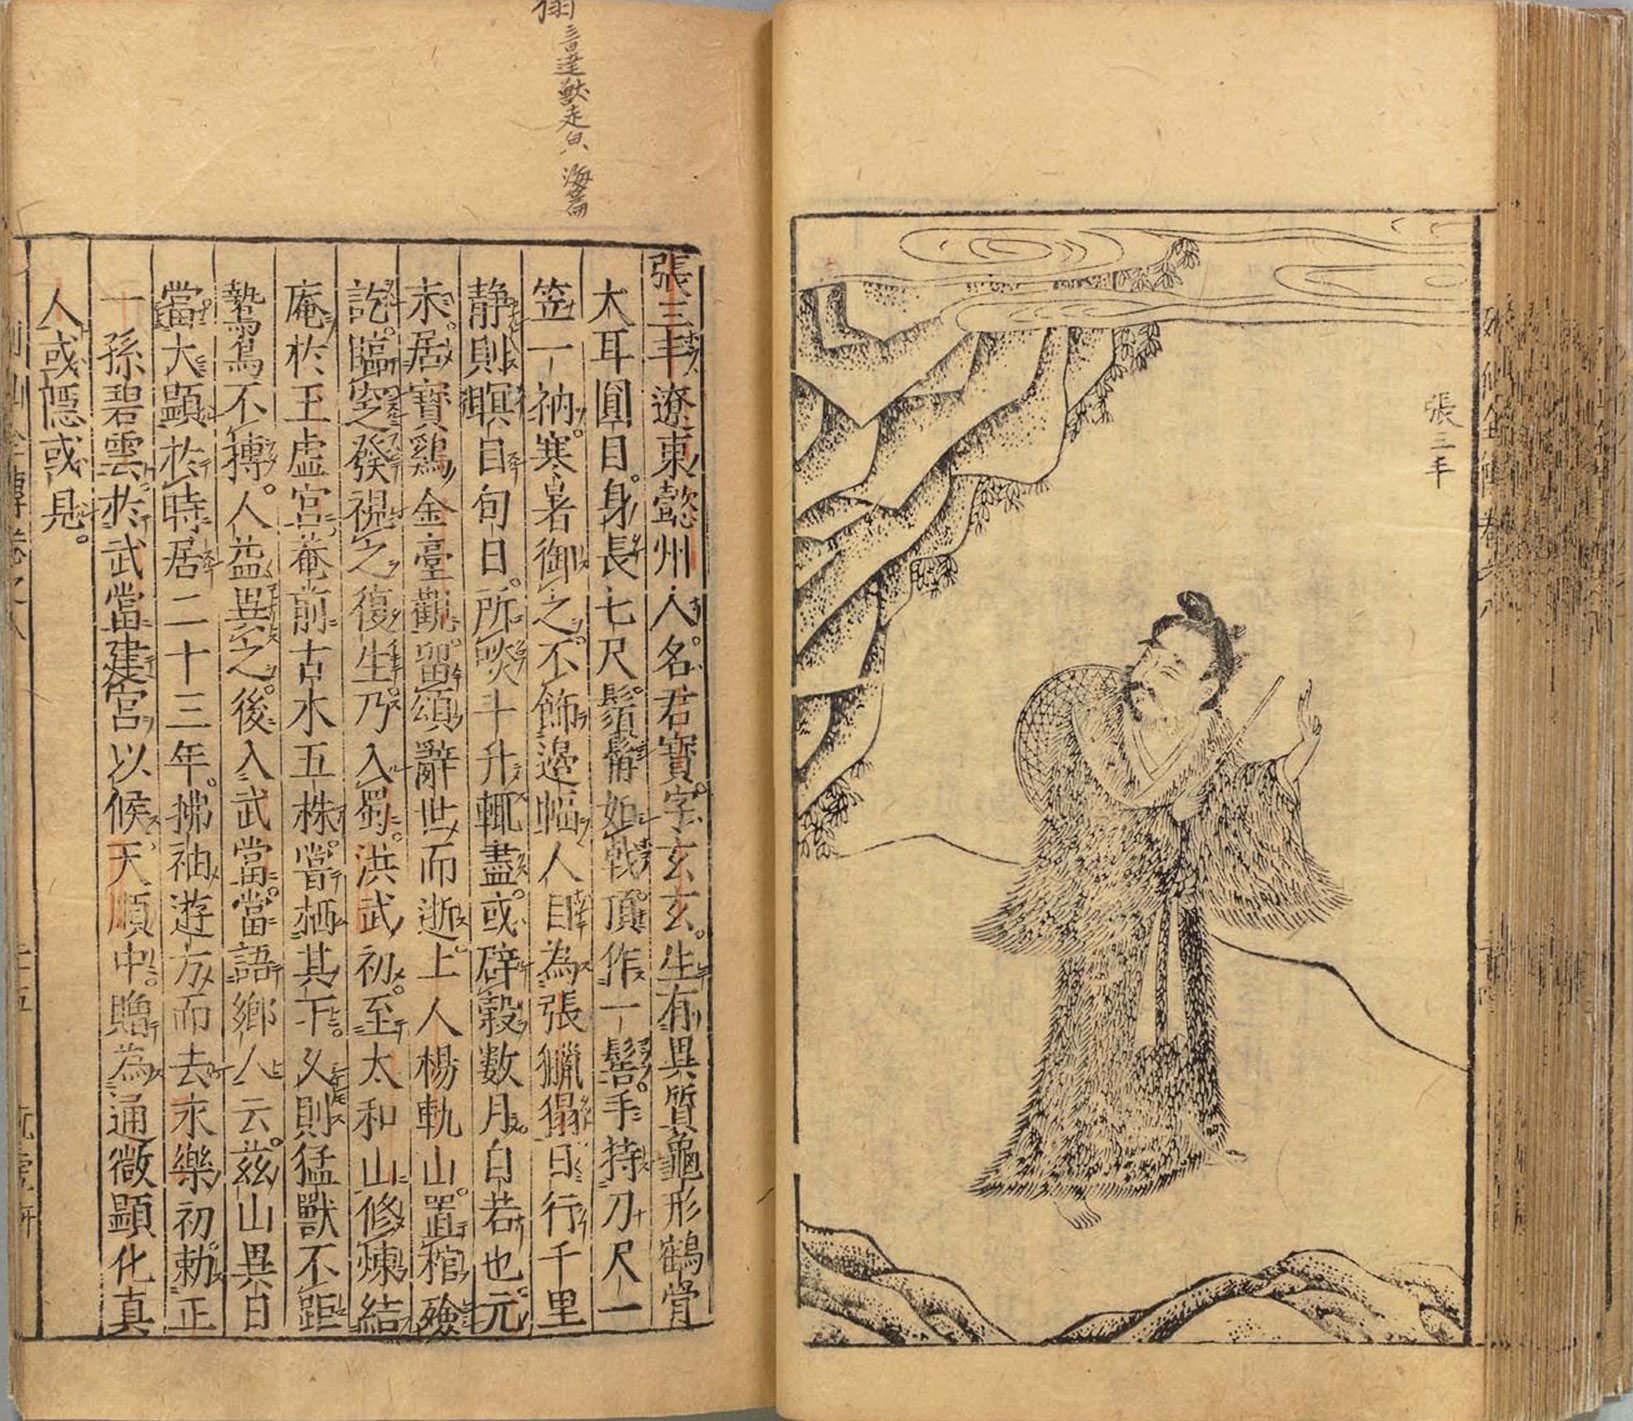 張三丰
音達獣走皃 海篇
張三丰遼東懿州人。名君寶。字玄玄。生有異質龜形鶴骨
大耳圓目。身長七尺。鬚髯如戟。頂作一髻。手持刀尺一
笠一衲。寒暑御之。不飾邊幅人目為張獵日行千里
静則瞑目旬日。所啖斗升輒盡。或辟穀數月。自若也。元
末。居寶鷄金臺觀。留頌辭世而逝。土人楊軌山。置棺殮
訖。臨窆發視之復生。乃入蜀。洪武初。至太和山修煉結
庵於玉虛宮。菴前古木五株。嘗栖其下。久則猛獸不距
鷙鳥不搏。人益異之。後入武當。當語鄉人云。茲山異日
當大顯於時。居二十三年。拂袖遊方而去。永樂初。勅正
一孫碧雲。於武當建宮以候。天順中。贈為通微顯化真
人。或隱或見。